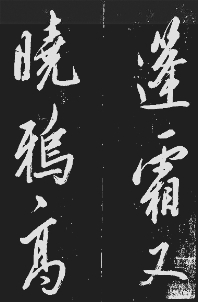 蓬霜又
曉鴉高